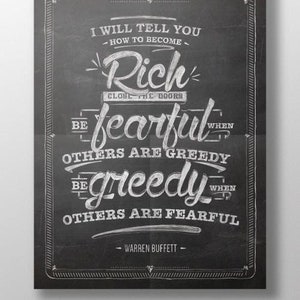 I WILL TELL YOU
HOW TO BECOME
Rich
CLOSE THE DOORS
BE fearful WHEN
OTHERS ARE GREEDY
BE greedy WHEN
OTHERS ARE FEARFUL
- WARREN BUFFETT -